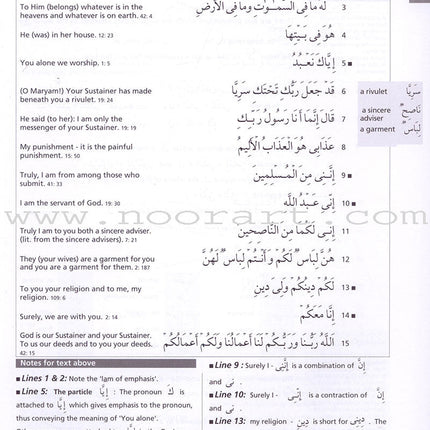 To Him (belongs) whatever is in the
heavens and whatever is on earth. 42: 4
3
لَهُ مَا فِى السَّمٰوٰتِ وَمَا فِى الْأَرْضِ
He (was) in her house. 12: 23
4
هُوَ فِى بَيْتِهَا
You alone we worship. 1: 5
5 ■
إِيَّاكَ نَعْبُدُ
(O Maryam!) Your Sustainer has made
beneath you a rivulet. 19: 24
6
قَدْ جَعَلَ رَبُّكِ تَحْتَكِ سَرِيًّا
a rivulet سَرِيًّا
He said (to her): I am only the
messenger of your Sustainer. 19: 19
7
قَالَ إِنَّمَا أَنَا رَسُولُ رَبِّكِ
a sincere
adviser نَاصِحٌ
a garment لِبَاسٌ
My punishment - it is the painful
punishment. 15: 50
8
عَذَابِى هُوَ الْعَذَابُ الْأَلِيمُ
Truly, I am from among those who
submit. 41: 33
9 ■
إِنَّنِى مِنَ الْمُسْلِمِينَ
I am the servant of God. 19: 30
10 ■
إِنِّى عَبْدُ اللَّهِ
www.noorart.com
Truly I am to you both a sincere adviser.
(lit. from the sincere advisers). 7: 21
11
إِنِّى لَكُمَا مِنَ النَّاصِحِينَ
They (your wives) are a garment for you
and you are a garment for them. 2: 187
12
هُنَّ لِبَاسٌ لَكُمْ وَأَنْتُمْ لِبَاسٌ لَهُنَّ
To you your religion and to me, my
religion. 109: 6
13 ■
لَكُمْ دِينُكُمْ وَلِىَ دِينِ
Surely, we are with you. 2: 14
14 ■
إِنَّا مَعَكُمْ
God is our Sustainer and your Sustainer.
To us our deeds and to you your deeds.
42: 15
15
اللَّهُ رَبُّنَا وَرَبُّكُمْ لَنَا أَعْمَالُنَا وَلَكُمْ أَعْمَالُكُمْ
Notes for text above
■ Lines 1 & 2: Note the 'lam of emphasis'.
■ Line 5: The particle إِيَّا : The pronoun كَ is
attached to إِيَّا which gives emphasis to the pronoun,
thus conveying the meaning of 'You alone'.
■ Line 9 : Surely I - إِنَّنِى is a combination of إِنَّ
and نِى .
■ Line 10: Surely I - إِنِّى is a contraction of إِنَّ
and نِى .
■ Line 13: my religion - دِينِ is short for دِينِى . The